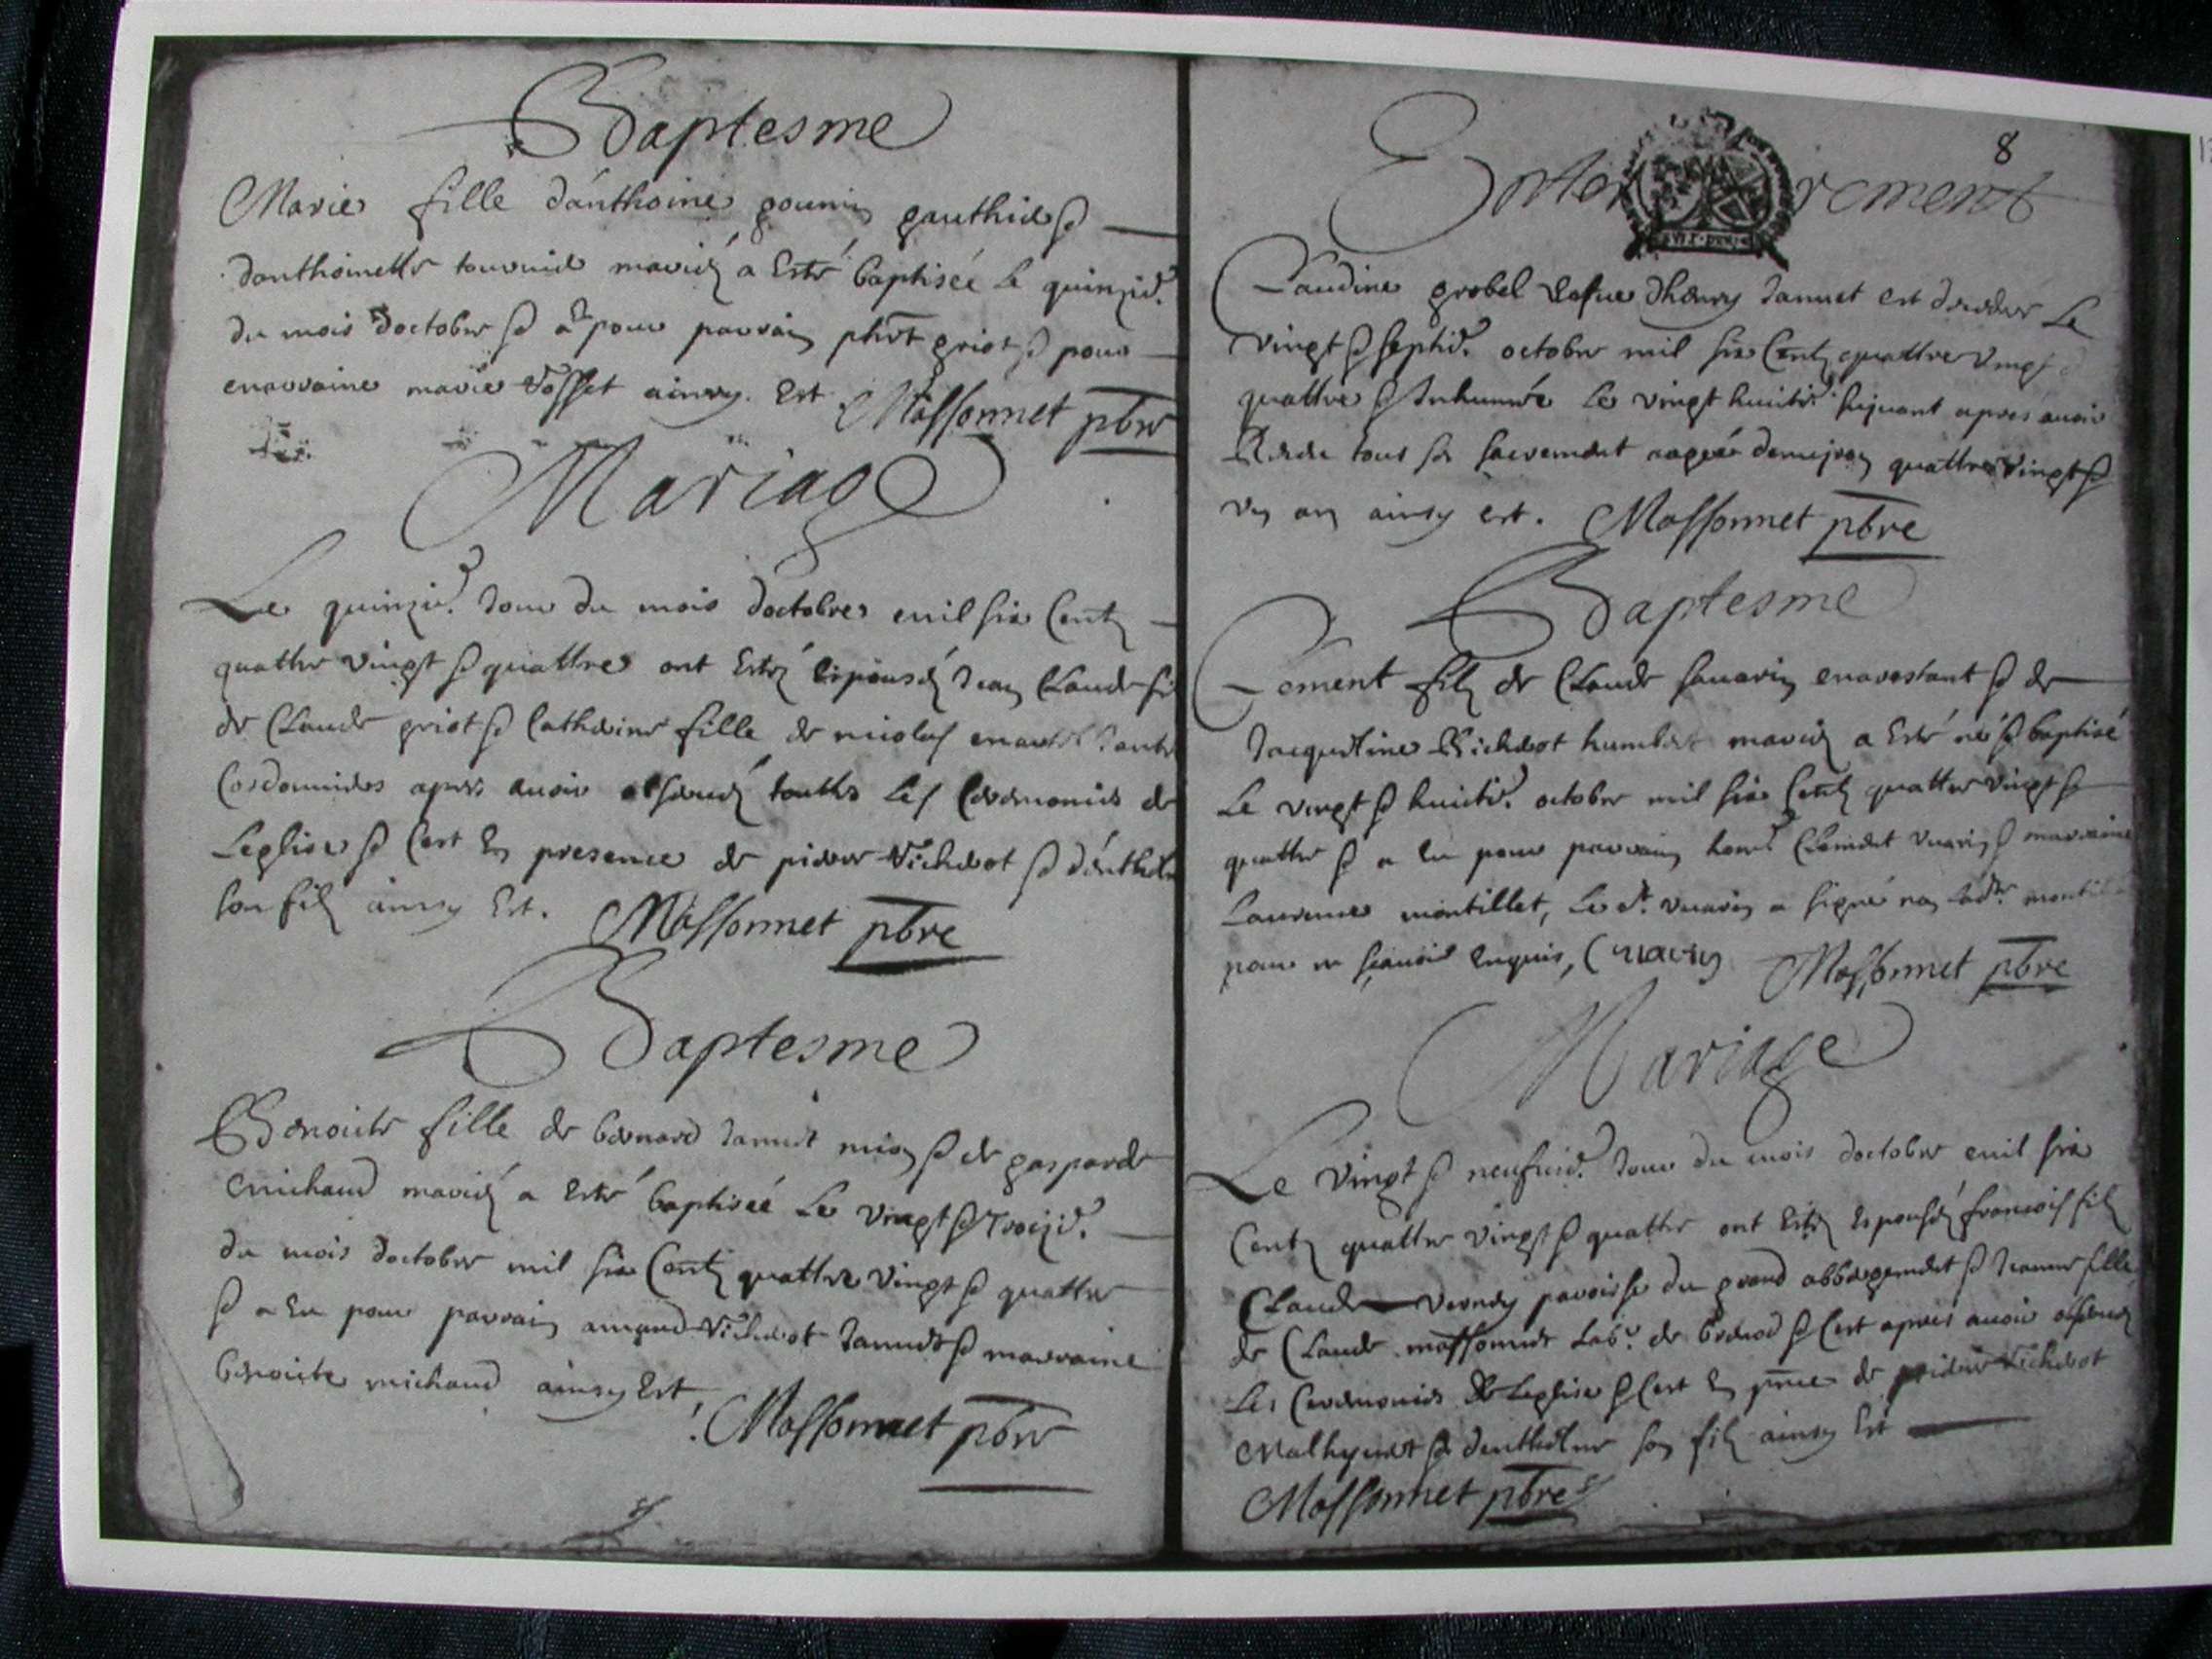 Baptesme
Marie fille d'anthoine goumin gauthier &
d'anthoinette tournier mariez a Esté baptisée Le quinzie.
du mois d'octobre & a pour parrain phbt griot & pour
marraine marie Vosset ainsy Est Massonnet pbre
Mariage
Le quinzie. Jour du mois d'octobre mil six Centz
quattre vingt & quattre ont Estez Espousez Jean Claude fi
de Claude griot & Catherine fille de nicolas
Cordonnier apres avoir observez touttes Les Ceremonies de
Leglise & Cest En presence de pierre Richerot & d'anthel
son filz ainsy Est. Massonnet pbre
Baptesme
Benoite fille de bernard Jannet & de gasparde
michaud mariez a Esté baptisée Le vingt & troizie.
du mois d'octobre mil six Centz quattre vingt & quattre
& a Eu pour parrain amand Richerot Jannet & marraine
benoite michaud ainsy Est,
Massonnet pbre
8
Enterrement
Claudine grobel vefue d'henry Jannet est decedee Le
vingt & septie. octobre mil six Centz quattre vingt
quattre & Inhumée Le vingt huitie. suivant apres avoir
Receu tous ses sacrement aagée denuiron quattre vingt &
un an ainsy est. Massonnet pbre
Baptesme
Clement filz de Claude savarin & de
Jacqueline Richerot humbert mariez a Esté né & baptisé
Le vingt & huictie. octobre mil six Centz quattre vingt &
quattre & a Eu pour parrain hone. Clement vuarin & marraine
Laurence montillet, Le dt. vuarin a signé non ladte. montil
pour ne scavoir Enquis, C vuarin Massonnet pbre
Mariage
Le vingt & neufuie. Jour du mois d'octobre mil six
Centz quattre vingt & quattre ont Estez Espousez francois filz
Claude verney paroisse du grand abbergement & Jeanne fille
de Claude massonnet Labr. de brenod & Cest apres avoir observez
Les Ceremonies de Leglise & Cest En pnce de pierre Richerot
& d'anthelme son filz ainsy Est
Massonnet pbre